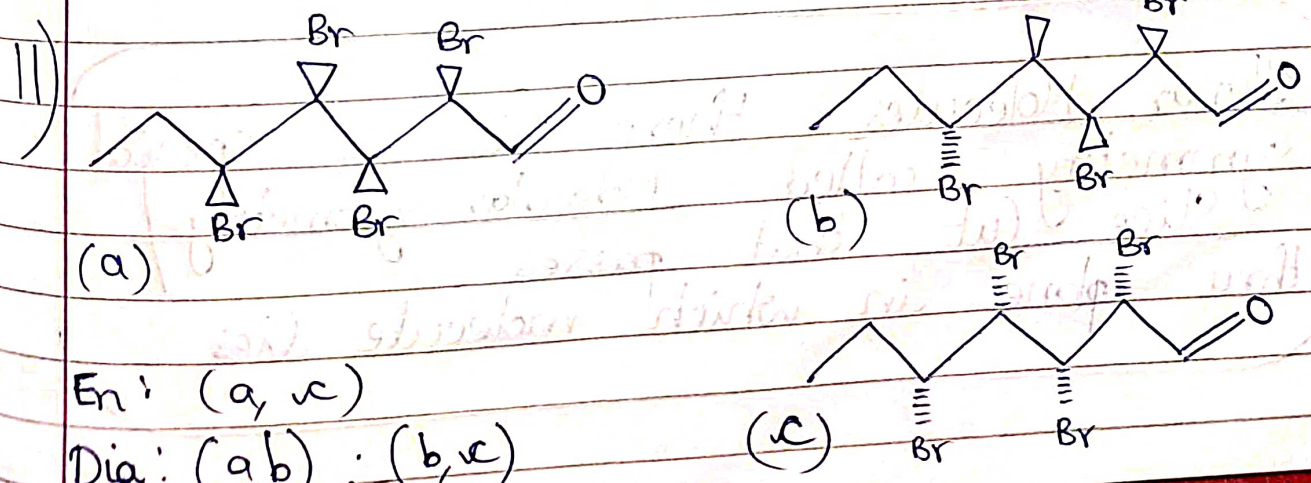 11)
Br Br
O
Br Br
(a)
Br
O
Br Br
(b)
Br Br
O
Br Br
(c)
En: (a, c)
Dia: (ab) . (b, c)